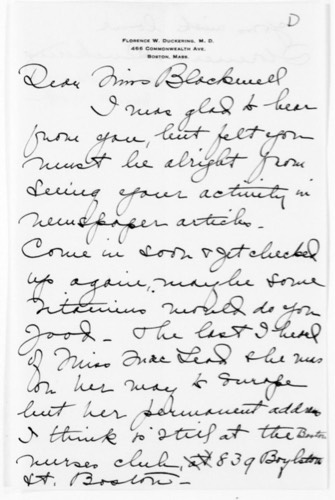 D
FLORENCE W. DUCKERING, M. D.
466 COMMONWEALTH AVE.
BOSTON, MASS.
Dear Miss Blackwell
I was glad to hear
from you, but felt you
must be alright from
seeing your activity in
newspaper articles.
Come in soon & get checked
up again, maybe some
vitamins would do you
good - The last I heard
of Miss Mac Lead she was
on her way to Europe
but her permanent address
I think is still at the Boston
nurses club, at 839 Boylston
St. Boston -